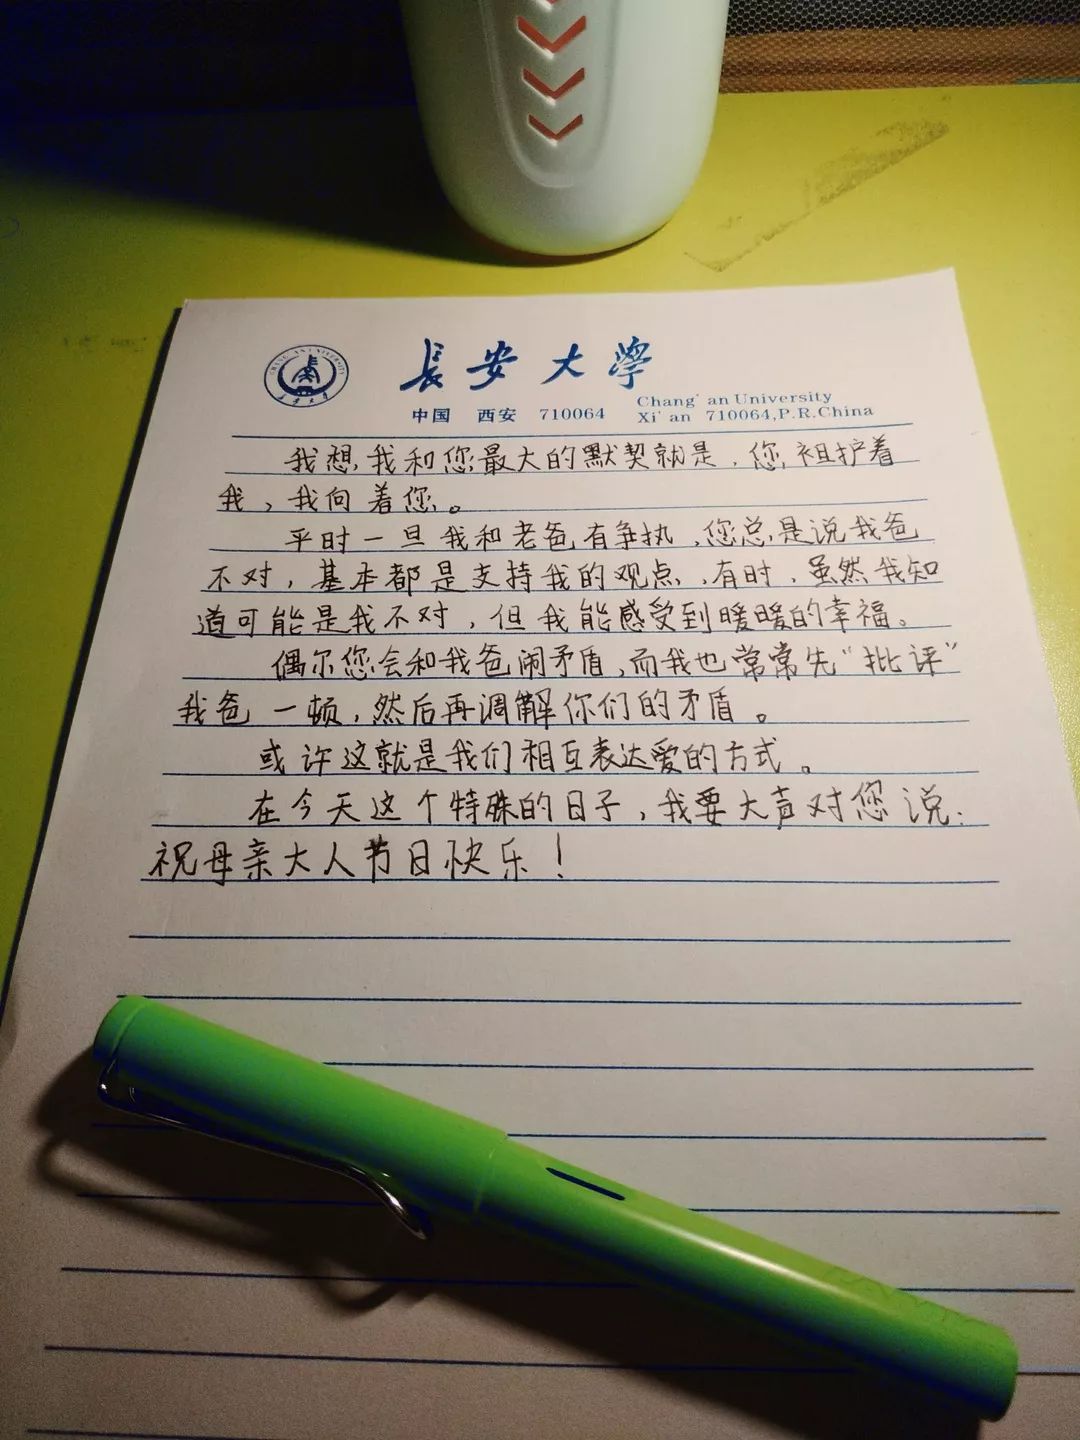 長安大學
中国 西安 710064
Chang' an University
Xi' an 710064,P.R.China
我想,我和您最大的默契就是,您袒护着
我,我向着您。
平时一旦我和老爸有争执,您总是说我爸
不对,基本都是支持我的观点,有时,虽然我知
道可能是我不对,但我能感受到暖暖的幸福。
偶尔您会和我爸闹矛盾,而我也常常先“批评”
我爸一顿,然后再调解你们的矛盾。
或许这就是我们相互表达爱的方式。
在今天这个特殊的日子,我要大声对您说:
祝母亲大人节日快乐!